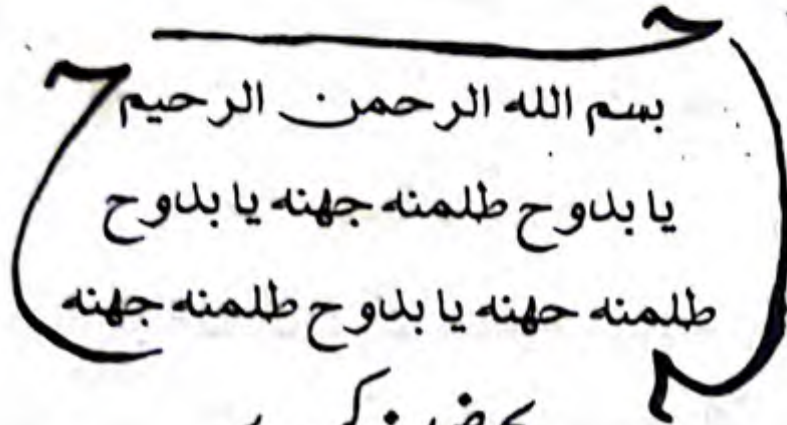 بسم الله الرحمن الرحيم
يا بدوح طلمنه جهنه يا بدوح
طلمنه حهنه يا بدوح طلمنه جهنه